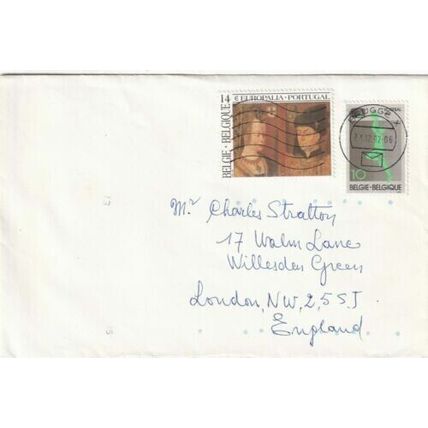 14 € EUROPALIA - PORTUGAL
BELGIE - BELGIQUE
BRUGGE
10
BELGIE-BELGIQUE
Mr Charles Stratton
17 Walm Lane
Willesden Green
London, N.W, 2, 5 S J
England